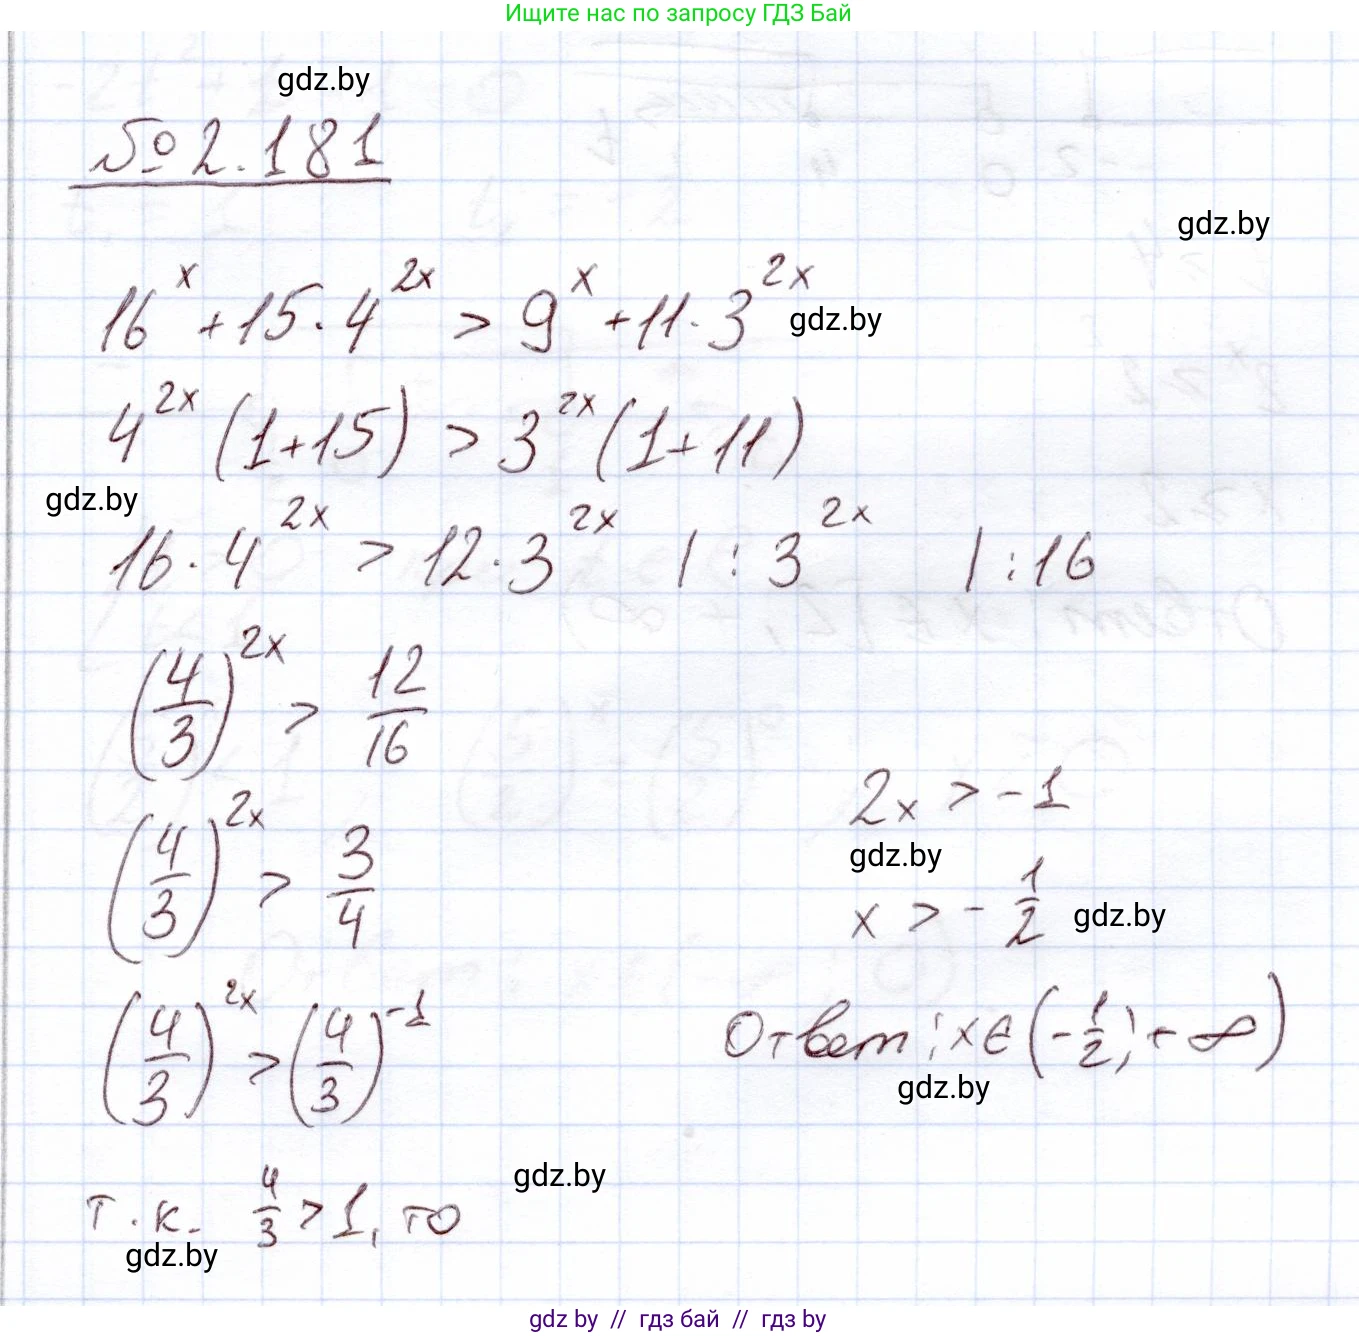 Ищите нас по запросу ГДЗ Бай
gdz.by
№ 2.181
gdz.by
16^x + 15 · 4^2x > 9^x + 11 · 3^2x
gdz.by
4^2x (1+15) > 3^2x (1+11)
gdz.by
16 · 4^2x > 12 · 3^2x | : 3^2x | : 16
(4/3)^2x > 12/16
(4/3)^2x > 3/4
(4/3)^2x > (4/3)^-1
т.к. 4/3 > 1, то
gdz.by
gdz.by
2x > -1
gdz.by
x > - 1/2
gdz.by
Ответ: x ∈ (-1/2; +∞)
gdz.by
gdz.by // гдз бай // гдз by